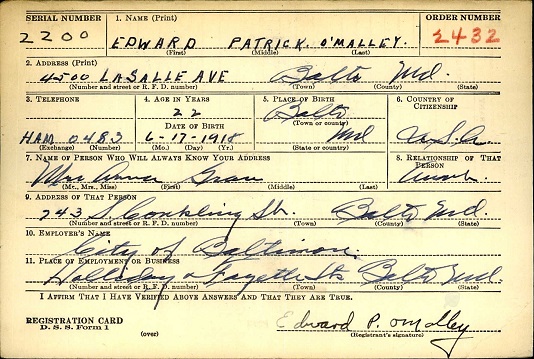 SERIAL NUMBER 1. NAME (Print) ORDER NUMBER
2200 EDWARD PATRICK. O'MALLEY. 2432
(First) (Middle) (Last)
2. ADDRESS (Print)
4500 LASALLE AVE Balto Md.
(Number and street or R. F. D. number) (Town) (County) (State)
3. TELEPHONE 4. AGE IN YEARS 5. PLACE OF BIRTH 6. COUNTRY OF CITIZENSHIP
22 Balto
DATE OF BIRTH (Town or county)
HAM 0483 6-17-1918 Md U.S.A.
(Exchange) (Number) (Mo.) (Day) (Yr.) (State or country)
7. NAME OF PERSON WHO WILL ALWAYS KNOW YOUR ADDRESS 8. RELATIONSHIP OF THAT PERSON
Mrs Anna
(Mr., Mrs., Miss) (First) (Middle) (Last)
9. ADDRESS OF THAT PERSON
743 S. Conkling St. Balto Md.
(Number and street or R. F. D. number) (Town) (County) (State)
10. EMPLOYER'S NAME
City of Baltimore
11. PLACE OF EMPLOYMENT OR BUSINESS
Holliday & Fayette Sts Balto Md.
(Number and street or R. F. D. number) (Town) (County) (State)
I AFFIRM THAT I HAVE VERIFIED ABOVE ANSWERS AND THAT THEY ARE TRUE.
REGISTRATION CARD
D. S. S. Form 1 (over) Edward P. O'Malley
(Registrant's signature)